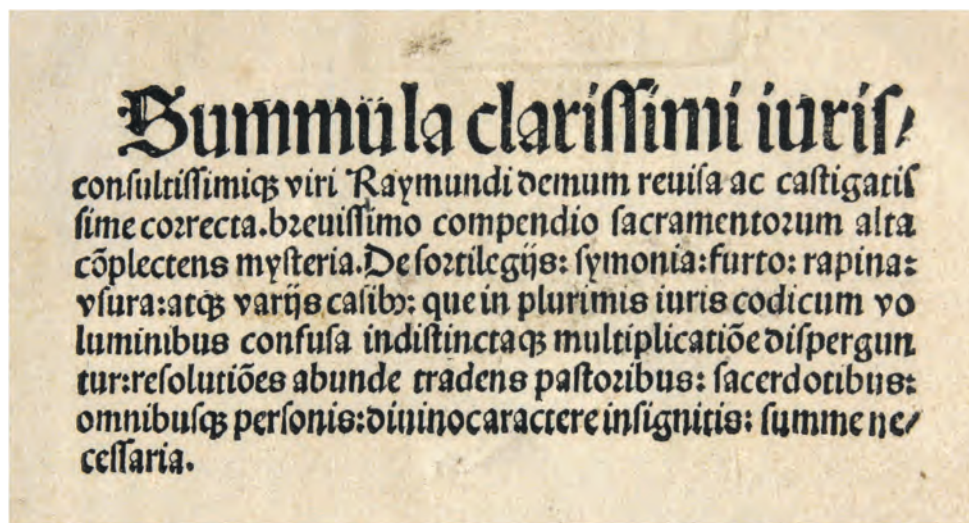 Summũla clariſſimi iuriſ⸗
conſultiſſimiqꝫ viri Raymundi demum reuiſa ac caſtigatiſ
ſime correcta.breuiſſimo compendio ſacramentorum alta
cõplectens myſteria.De ſortilegijs: ſymonia:furto: rapina:
vſura:atqꝫ varijs caſibꝰ: que in plurimis iuris codicum vo
luminibus confuſa indiſtinctaqꝫ multiplicatiõe diſpergun
tur:reſolutiões abunde tradens paſtoribus: ſacerdotibus:
omnibuſqꝫ perſonis:diuino caractere inſignitis: ſumme ne⸗
ceſſaria.